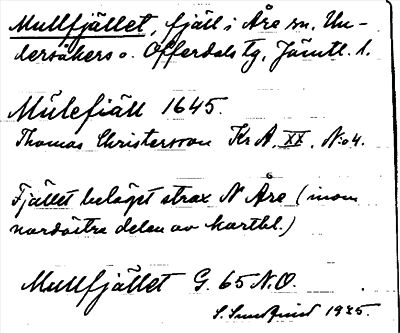 Mullfjället, fjäll i Åre sn, Un-
dersåkers o. Offerdals tg, Jämtl. l.
Mülefiäll 1645.
Thomas Christersson Kr A, XX, No 4.
Fjället beläget strax N Åre (inom
nordöstra delen av kartbl.)
Mullfjället G. 65 N.O.
S. Sundqvist 1925.